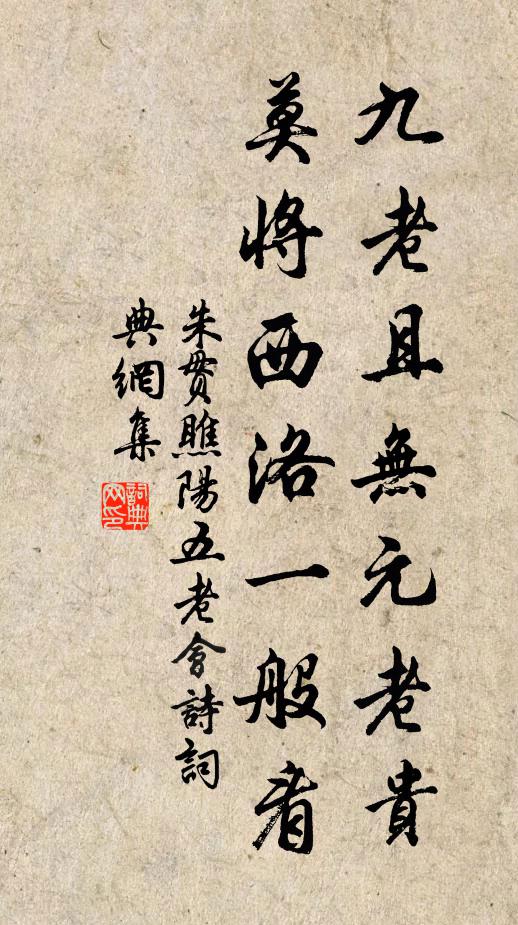 九老且無元老貴
莫將西洛一般看
朱貫睢陽五老會詩詞
典網集
詞典網印